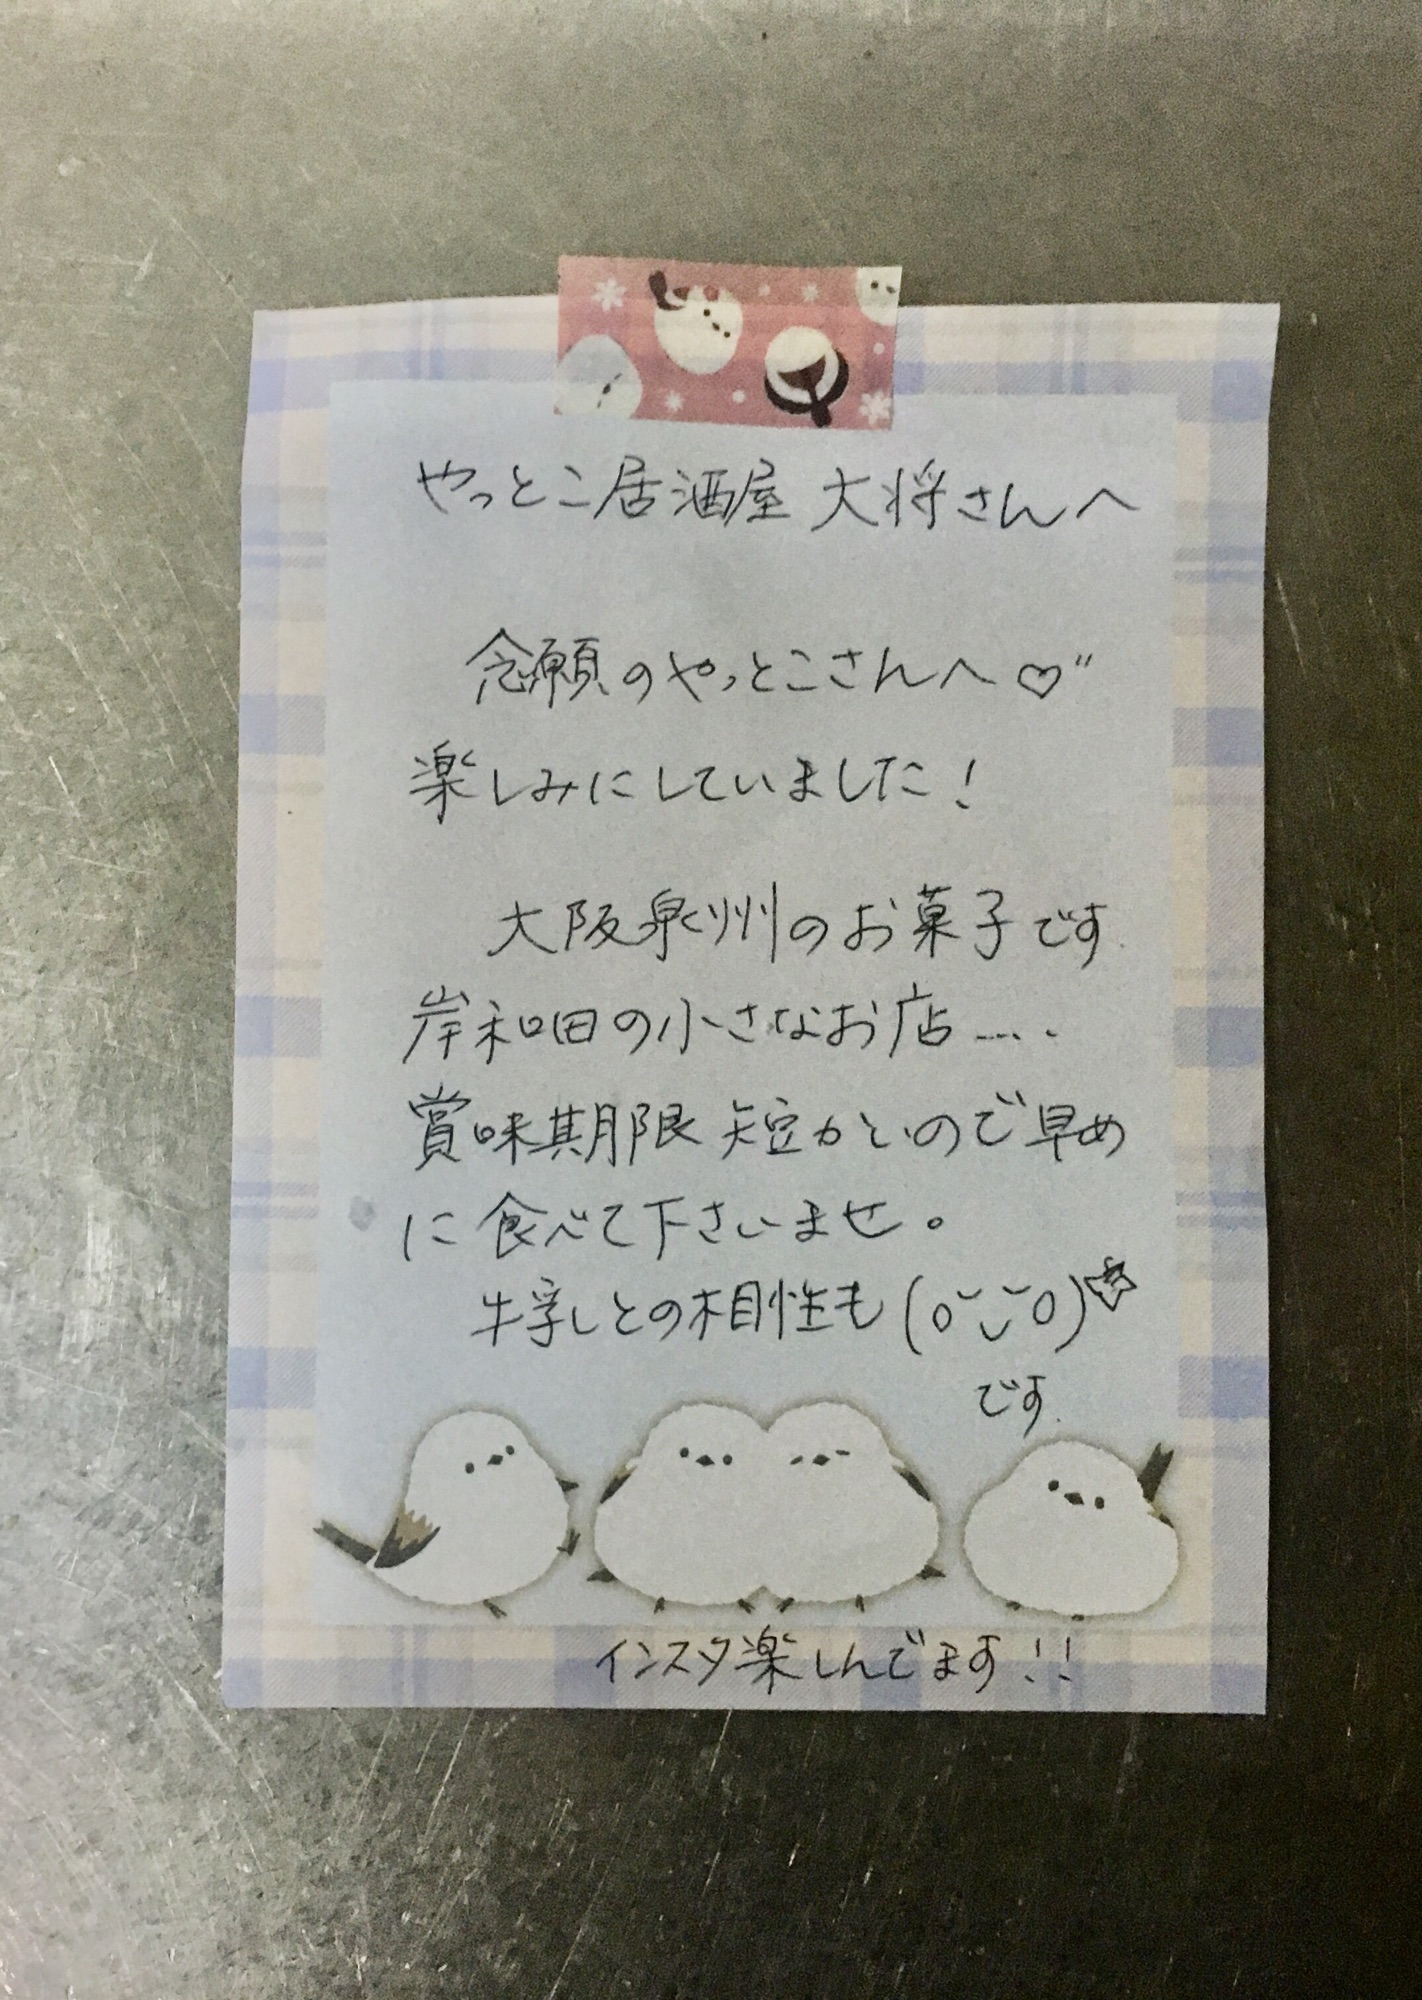 やっとこ居酒屋 大将さんへ
念願のやっとこさんへ♡"
楽しみにしていました!
大阪泉州のお菓子です
岸和田の小さなお店....
賞味期限短かいので早め
に食べて下さいませ。
牛乳との相性も(o˘◡˘o)☆
です.
インスタ楽しんでます!!